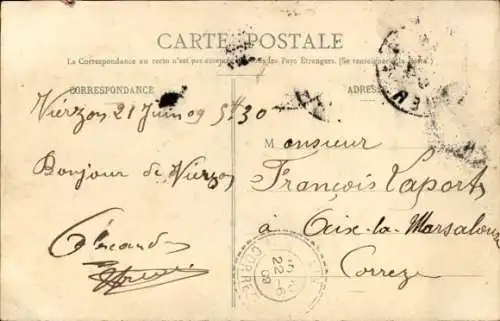 CARTE POSTALE
La Correspondance au recto n'est pas acceptée par les Pays Etrangers. (Se renseigner à la Poste.)
CORRESPONDANCE
ADRESSE
Vierzon 21 Juin 09 5h30
Bonjour de Vierzon
Monsieur
François Laporte
à Aix-la-Marsalouse
Corrèze
22-6
09
CORRÈZE